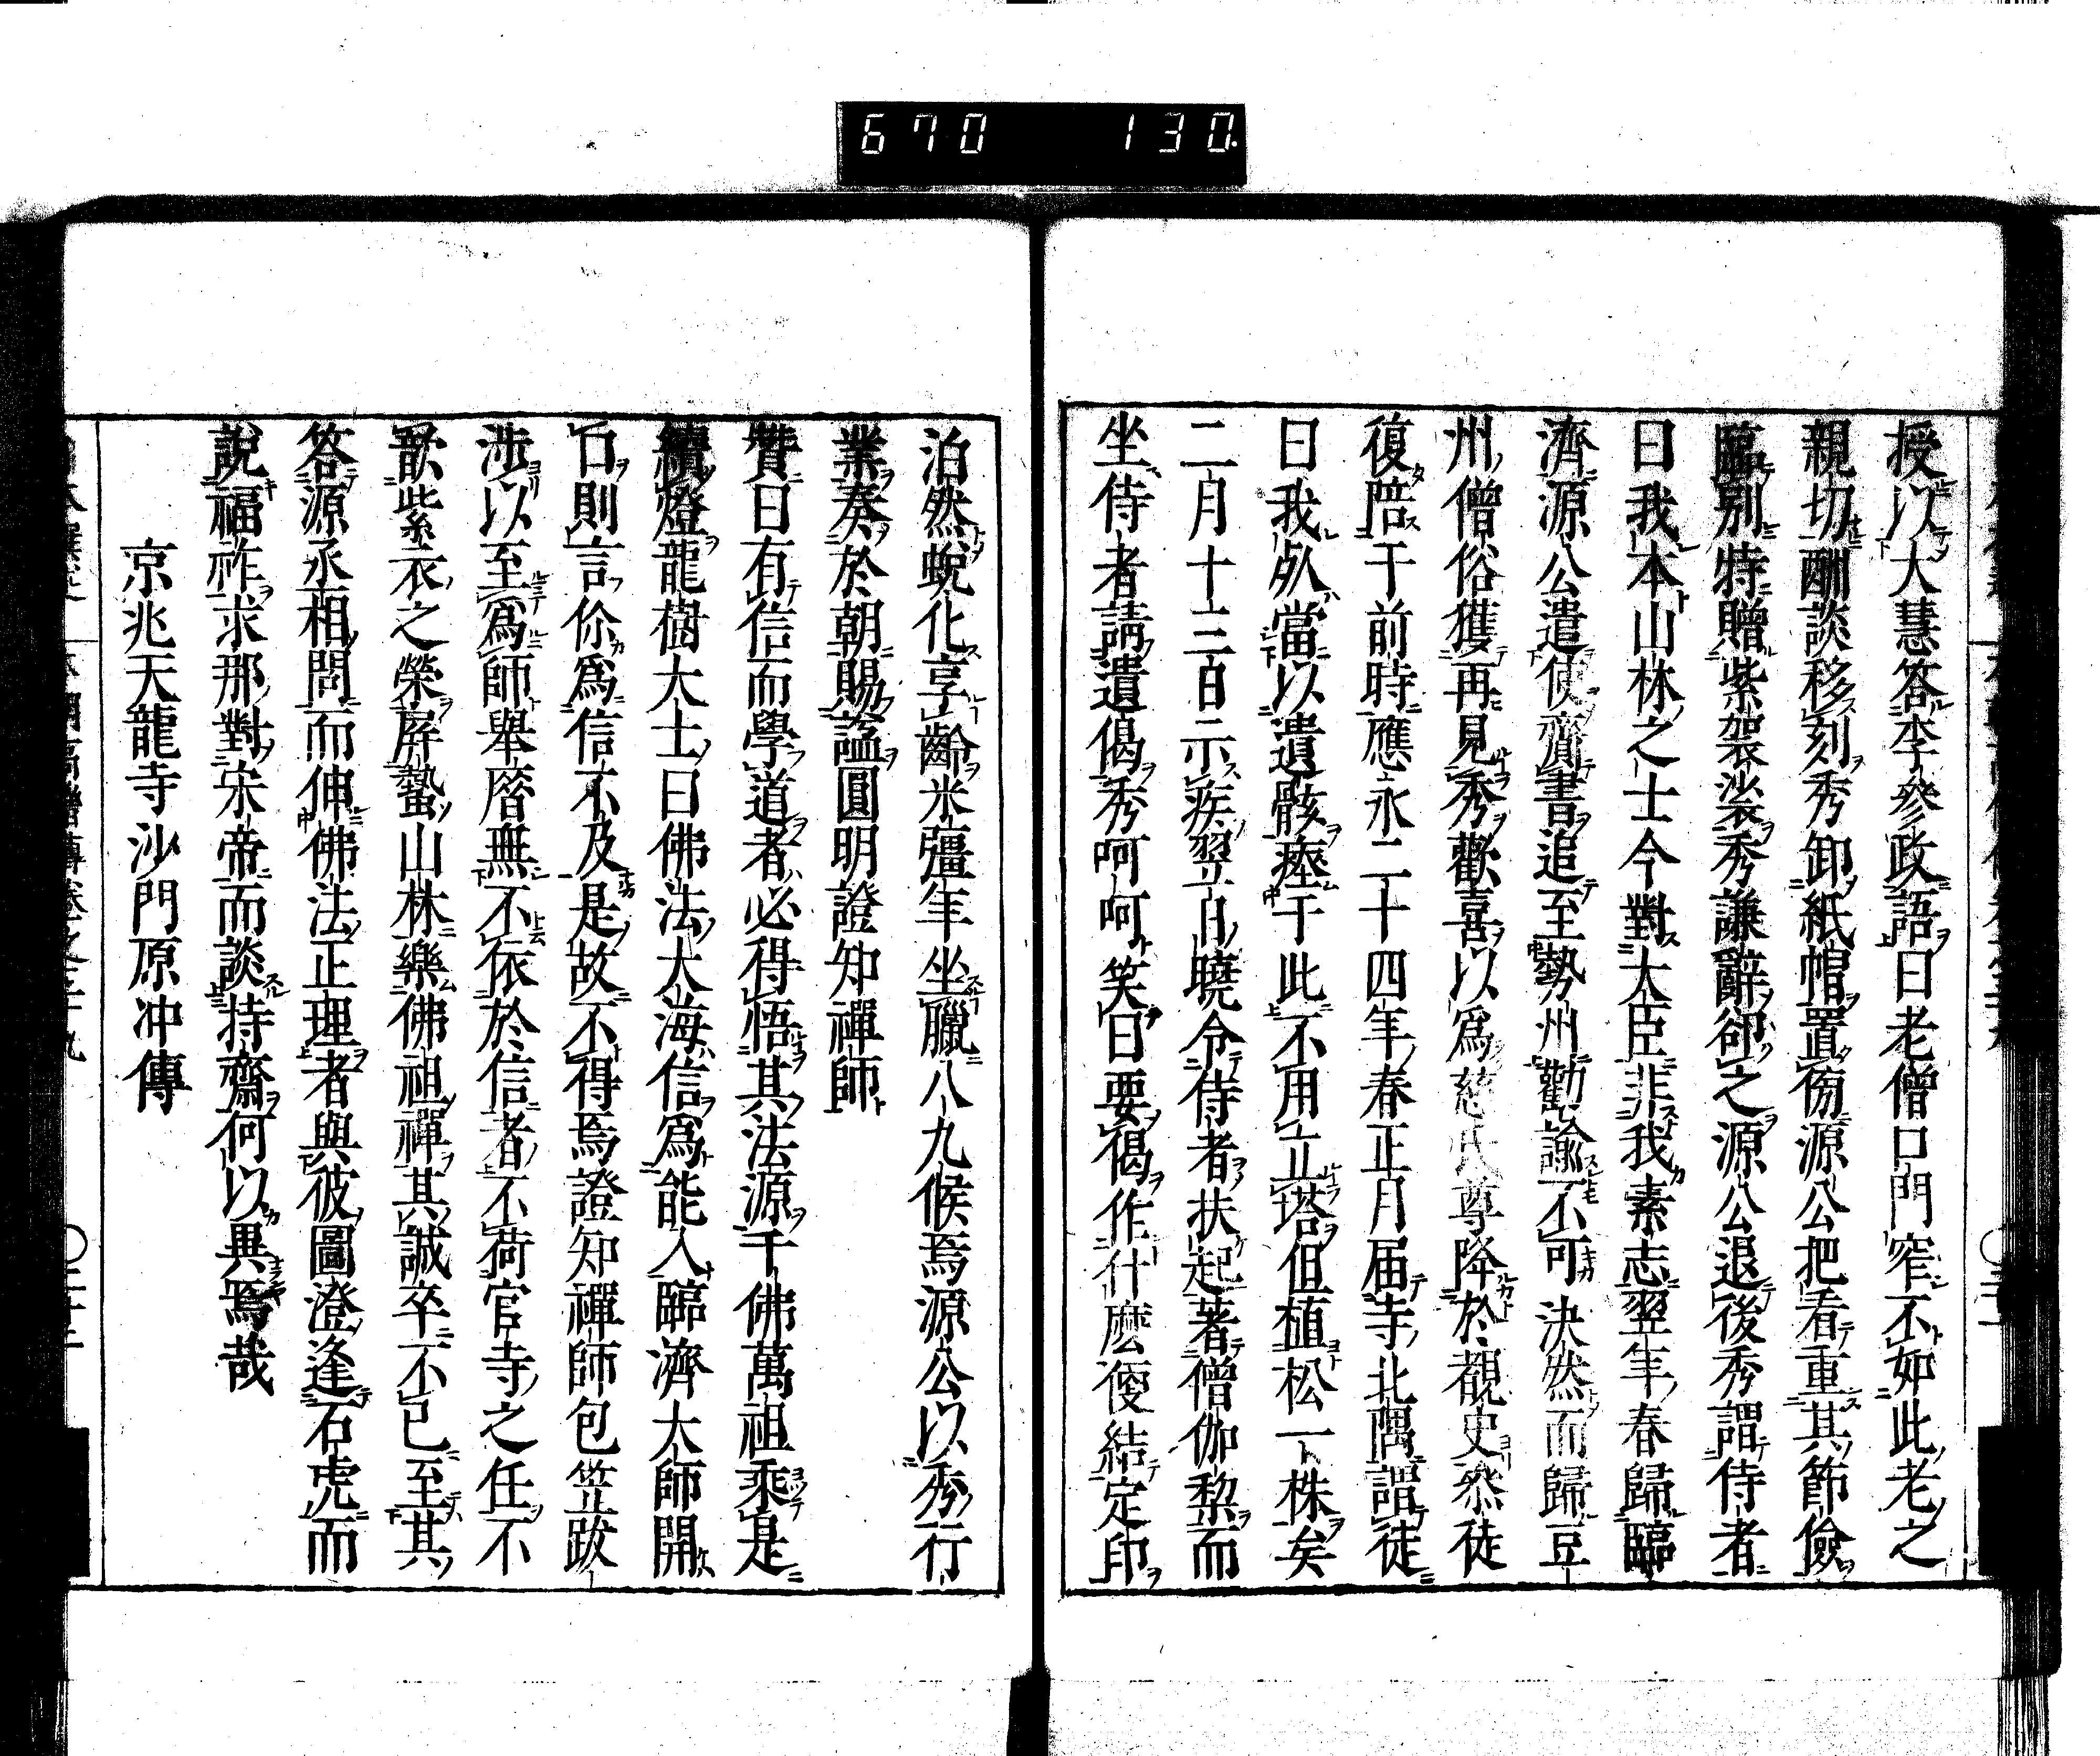 670 130
授以大慧答李參政語曰老僧口門窄不如此老之
親切酬談移刻秀卸紙帽置傍源公把看重其節儉
臨別特贈紫袈裟秀謙辭卻之源公退後秀謂侍者
曰我本山林之士今對大臣非我素志翌年春歸臨
濟源公遣使齎書追至勢州勸諭不可決然而歸豆
州僧俗獲再見秀歡喜以爲慈氏尊降於覩史忝徒
復陪于前時應永二十四年春正月届寺北隅謂徒
曰我㱕當以遺骸瘞于此不用立塔但植松一株矣
二月十三日示疾翌月曉令侍者扶起著僧伽黎而
坐侍者請遺偈秀呵呵笑曰要偈作什麽便結定印
泊然蛻化享齡米彊年坐臘八九候焉源公以秀行
業奏於朝賜謚圓明證知禪師
贊曰有信而學道者必得悟其法源千佛萬祖乘是
續燈龍樹大士曰佛法大海信爲能入臨濟大師開
口則言你爲信不及是故不得焉證知禪師包笠跋
涉以至爲師舉厝無不依於信者不荷官寺之任不
歆紫衣之榮屏蟄山林樂佛祖禪其誠卒不已至其
答源丞相問而伸佛法正理者與彼圖澄逢石虎而
說福祚求那對宋帝而談持齋何以異焉哉
京兆天龍寺沙門原冲傳